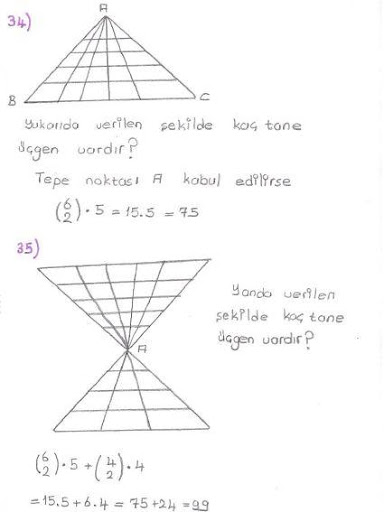 34)
A
B
C
Yukarıda verilen şekilde kaç tane
üçgen vardır?
Tepe noktası A kabul edilirse
(6 2) · 5 = 15.5 = 75
35)
A
Yanda verilen
şekilde kaç tane
üçgen vardır?
(6 2) · 5 + (4 2) · 4
= 15.5 + 6.4 = 75 + 24 = 99